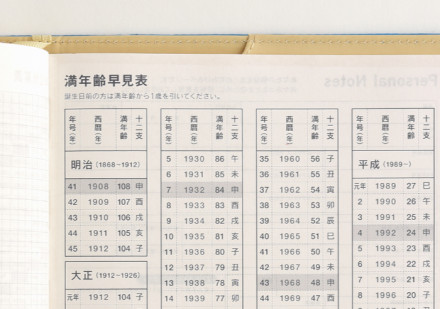 Personal Notes
満年齢早見表
誕生日前の方は満年齢から1歳を引いてください。
年号(年) 西暦(年) 満年齢 十二支
明治 (1868~1912)
41 1908 108 申
42 1909 107 酉
43 1910 106 戌
44 1911 105 亥
45 1912 104 子
大正 (1912~1926)
元年 1912 104 子
年号(年) 西暦(年) 満年齢 十二支
5 1930 86 午
6 1931 85 未
7 1932 84 申
8 1933 83 酉
9 1934 82 戌
10 1935 81 亥
11 1936 80 子
12 1937 79 丑
13 1938 78 寅
14 1939 77 卯
年号(年) 西暦(年) 満年齢 十二支
35 1960 56 子
36 1961 55 丑
37 1962 54 寅
38 1963 53 卯
39 1964 52 辰
40 1965 51 巳
41 1966 50 午
42 1967 49 未
43 1968 48 申
44 1969 47 酉
年号(年) 西暦(年) 満年齢 十二支
平成 (1989~)
元年 1989 27 巳
2 1990 26 午
3 1991 25 未
4 1992 24 申
5 1993 23 酉
6 1994 22 戌
7 1995 21 亥
8 1996 20 子